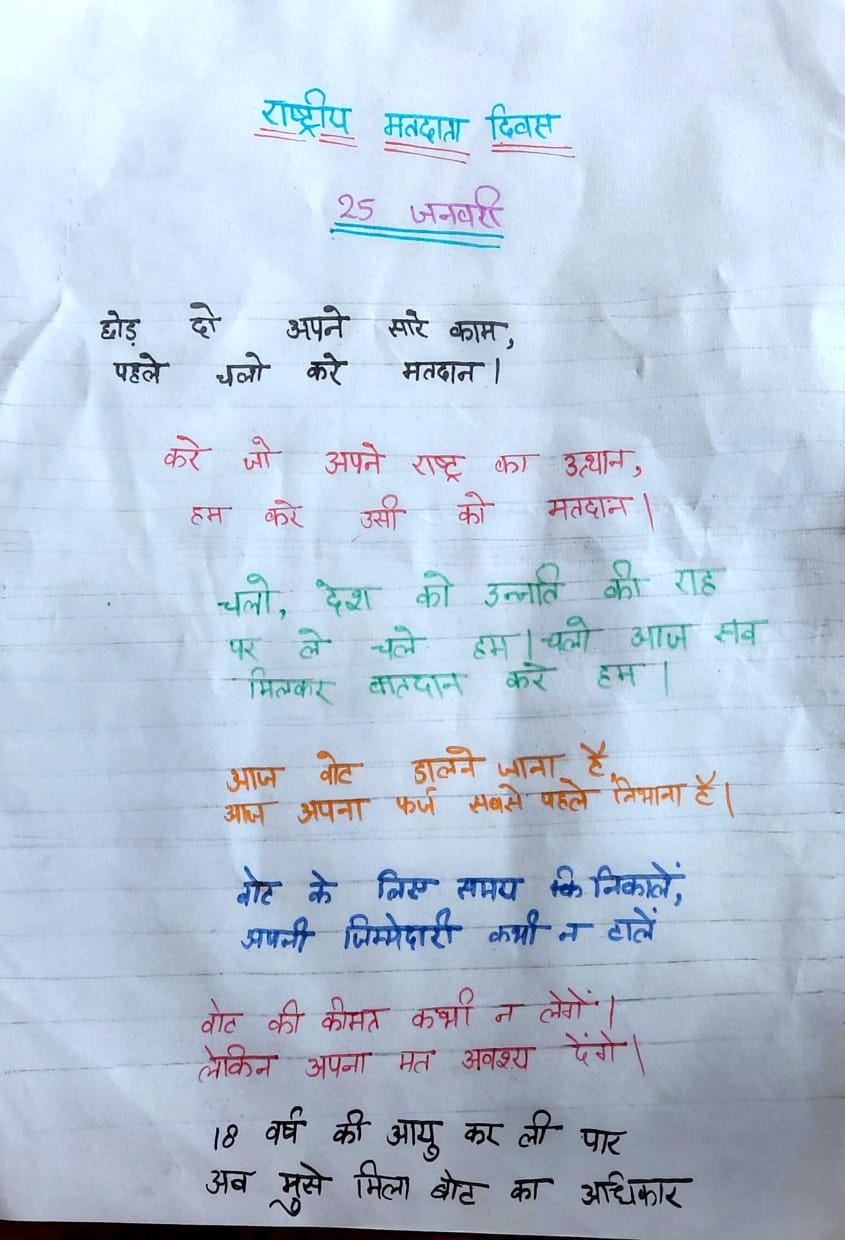 राष्ट्रीय मतदाता दिवस
25 जनवरी
छोड़ दो अपने सारे काम,
पहले चलो करे मतदान।
करे जो अपने राष्ट्र का उत्थान,
हम करे उसी को मतदान।
चलो, देश को उन्नति की राह
पर ले चले हम। चलो आज सब
मिलकर मतदान करे हम।
आज वोट डालने जाना है,
आज अपना फर्ज सबसे पहले निभाना है।
वोट के लिए समय निकालें,
अपनी जिम्मेदारी कभी न टालें
वोट की कीमत कभी न लेगें।
लेकिन अपना मत अवश्य देंगे।
18 वर्ष की आयु कर ली पार
अब मुसे मिला वोट का अधिकार